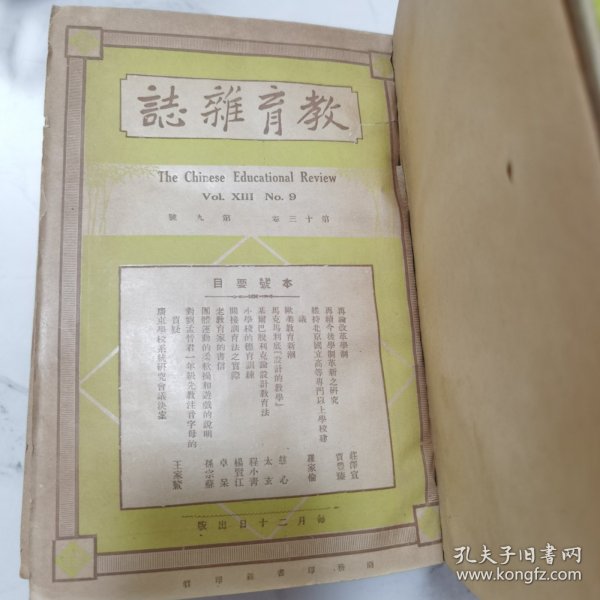 教育雜誌
The Chinese Educational Review
Vol. XIII No. 9
第十三卷 第九號
本號要目
再論改革學制 莊澤宣
再續今後學制革新之研究 賈豐臻
維持北京國立高等專門以上學校建
議 羅家倫
歐美教育新潮 慈心
馬克馬利底「設計的教學」 太玄
基爾巴脫利克論設計教育法
小學校的體育訓練 程小青
間接訓育法之實際 楊賢江
老教育家的書信 卓呆
團體運動的柔軟操和遊戲的說明 孫宗蘇
對劉孟晉君一年級先教注音字母的
質疑 王家鰲
廣東學校系統研究會議決案
每月二十日出版
商務印書館印行
孔夫子旧书网
www.kongfz.com